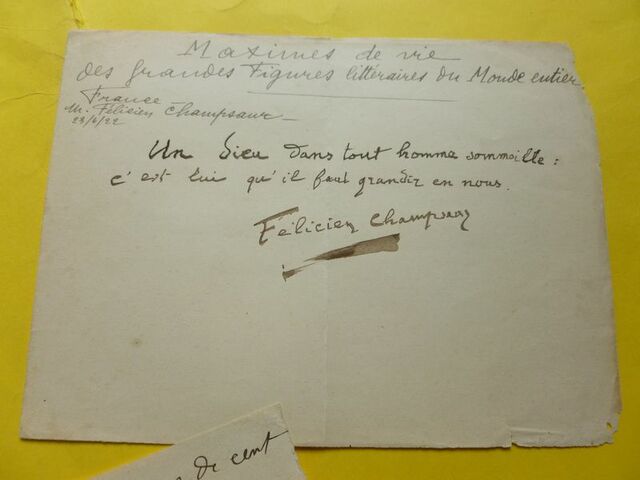 Maximes de vie
des grandes Figures littéraires du Monde entier
France
M. Félicien Champsaur
23/6/22
Un dieu dans tout homme sommeille :
c'est lui qu'il faut grandir en nous.
Félicien Champsaur
de cent